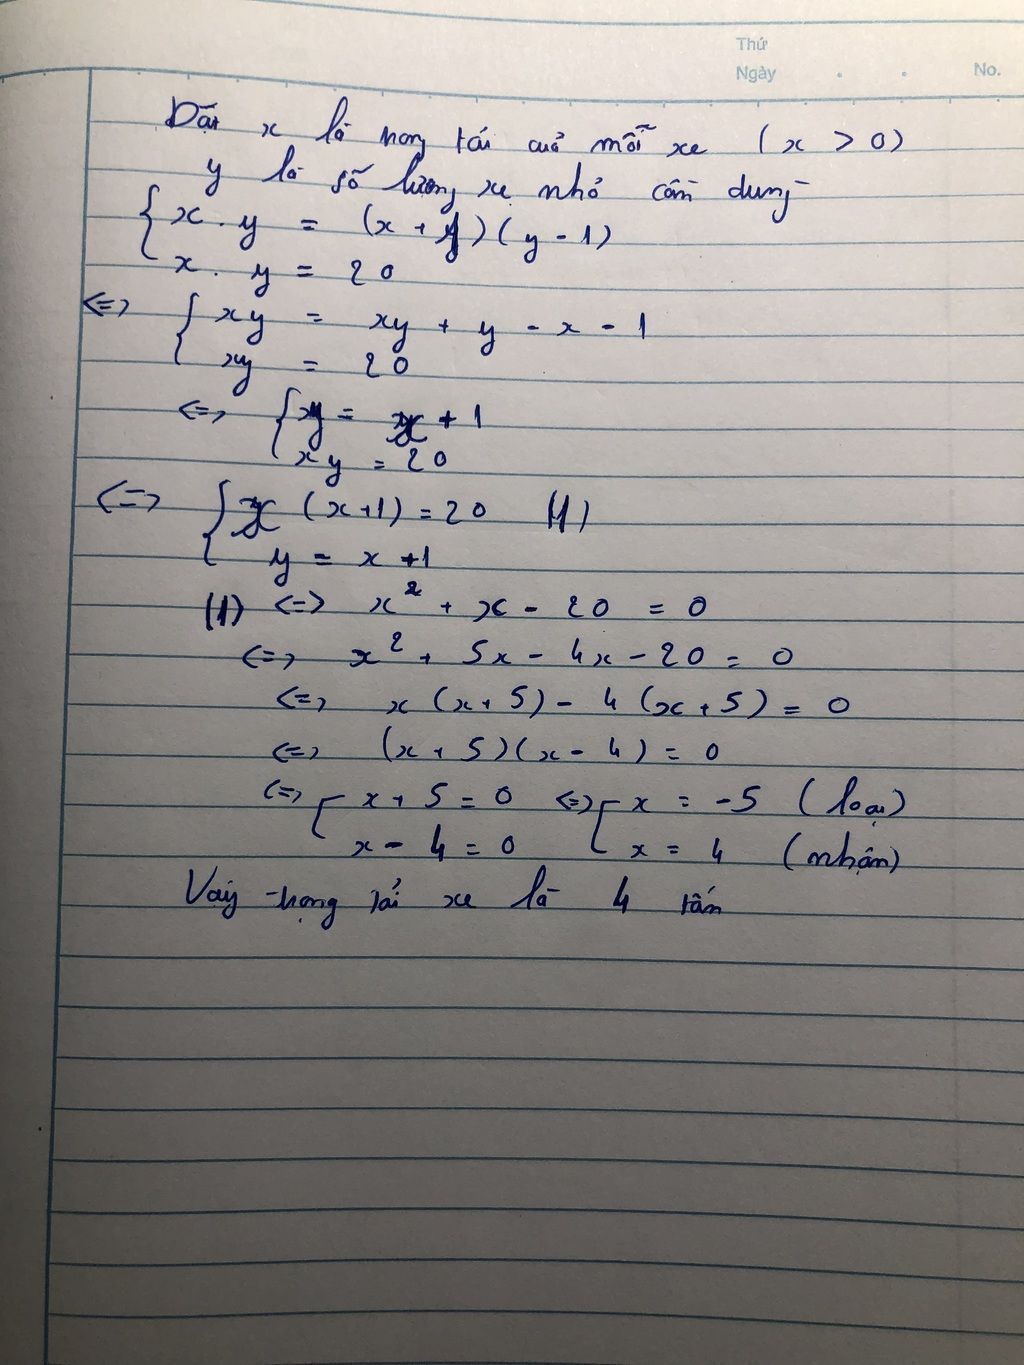 Thứ
Ngày . . No.
Đặt x là trọng tải của mỗi xe (x > 0)
y là số lượng xe nhỏ cần dùng
{ x . y = (x + 1)(y - 1)
x . y = 20
<=> { xy = xy + y - x - 1
xy = 20
<=> { y = x + 1
xy = 20
<=> { x (x+1) = 20 (1)
y = x + 1
(1) <=> x² + x - 20 = 0
<=> x² + 5x - 4x - 20 = 0
<=> x (x + 5) - 4 (x + 5) = 0
<=> (x + 5)(x - 4) = 0
<=> [ x + 5 = 0 <=> [ x = -5 (loại)
x - 4 = 0 x = 4 (nhận)
Vậy trọng tải xe là 4 tấn